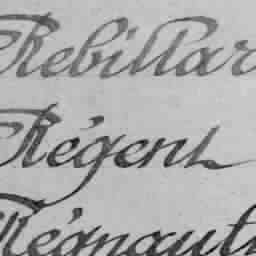 Rebillar
Régent
Régnault